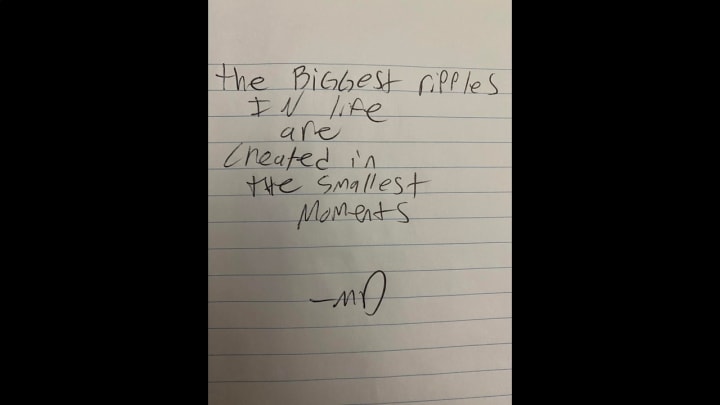 the BiGGest ripples
IN life
are
Created in
the smallest
Moments
-MD